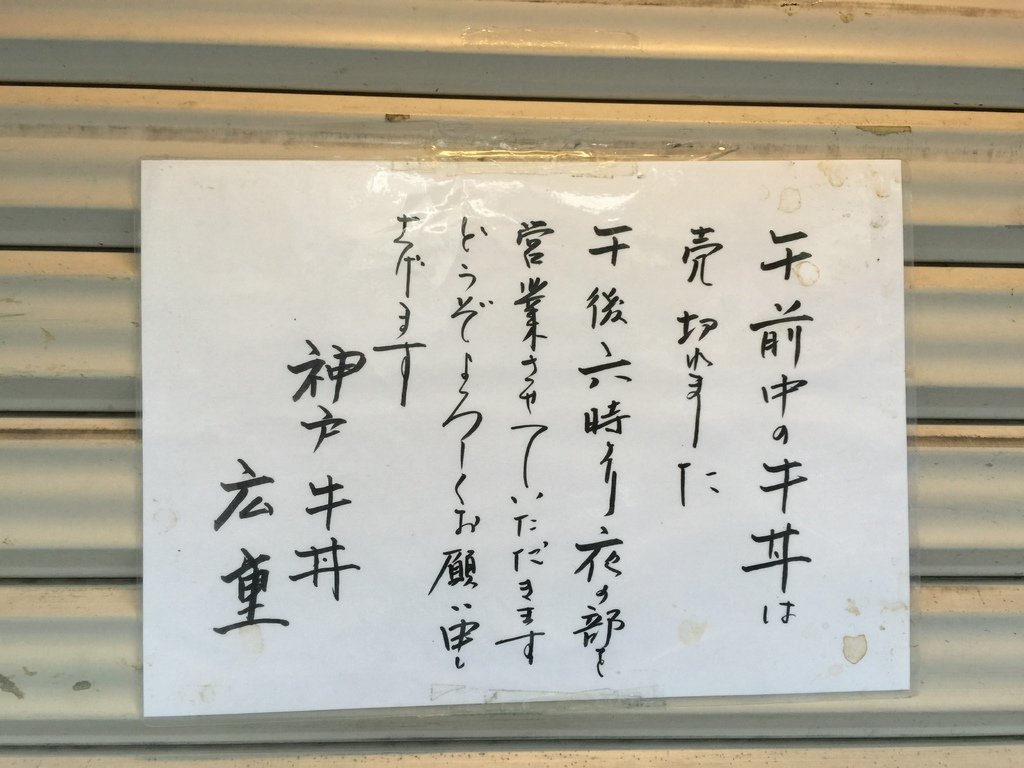 午前中の牛丼は
売切れました
午後六時より夜の部を
営業させていただきます
どうぞよろしくお願い申し
上げます
神戸牛丼
広重